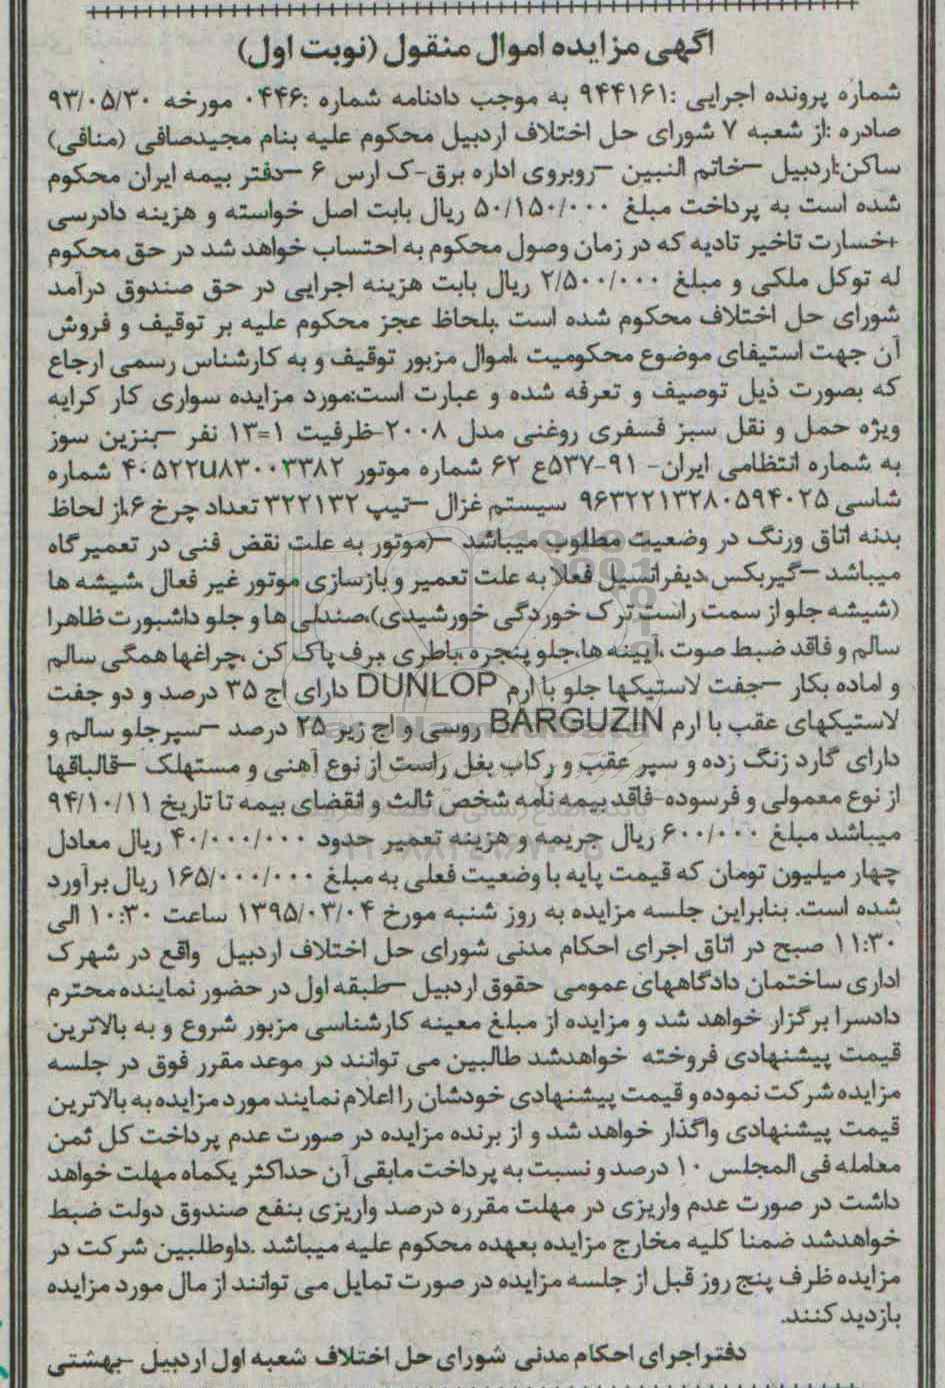 آگهی مزایده اموال منقول (نوبت اول)
شماره پرونده اجرایی :۹۴۴۱۶۱ به موجب دادنامه شماره :۰۴۴۶ مورخه ۹۳/۰۵/۳۰
صادره :از شعبه ۷ شورای حل اختلاف اردبیل محکوم علیه بنام مجیدصافی (منافی)
ساکن:اردبیل –خاتم النبین –روبروی اداره برق-ک ارس ۶ –دفتر بیمه ایران محکوم
شده است به پرداخت مبلغ ۵۰/۱۵۰/۰۰۰ ریال بابت اصل خواسته و هزینه دادرسی
+خسارت تاخیر تادیه که در زمان وصول محکوم به احتساب خواهد شد در حق محکوم
له توکل ملکی و مبلغ ۲/۵۰۰/۰۰۰ ریال بابت هزینه اجرایی در حق صندوق درآمد
شورای حل اختلاف محکوم شده است .بلحاظ عجز محکوم علیه بر توقیف و فروش
آن جهت استیفای موضوع محکومیت ،اموال مزبور توقیف و به کارشناس رسمی ارجاع
که بصورت ذیل توصیف و تعرفه شده و عبارت است:مورد مزایده سواری کار کرایه
ویژه حمل و نقل سبز فسفری روغنی مدل ۲۰۰۸-ظرفیت ۱=۱۳ نفر –بنزین سوز
به شماره انتظامی ایران- ۹۱-۵۳۷ع ۶۲ شماره موتور ۴۰۵۲۲U۸۳۰۰۳۳۸۲ شماره
شاسی ۹۶۳۲۲۱۳۲۸۰۵۹۴۰۲۵ سیستم غزال –تیپ ۳۲۲۱۳۲ تعداد چرخ ۶،از لحاظ
بدنه اتاق ورنگ در وضعیت مطلوب میباشد –(موتور به علت نقض فنی در تعمیرگاه
میباشد –گیربکس،دیفرانسیل فعلا به علت تعمیر و بازسازی موتور غیر فعال ،شیشه ها
(شیشه جلو از سمت راست ترک خوردگی خورشیدی)،صندلی ها و جلو داشبورت ظاهرا
سالم و فاقد ضبط صوت ،آیینه ها،جلو پنجره ،باطری ،برف پاک کن ،چراغها همگی سالم
و اماده بکار –جفت لاستیکها جلو با ارم DUNLOP دارای اج ۳۵ درصد و دو جفت
لاستیکهای عقب با ارم BARGUZIN روسی و اج زیر ۲۵ درصد –سپر جلو سالم و
دارای گارد زنگ زده و سپر عقب و رکاب بغل راست از نوع آهنی و مستهلک –قالپاقها
از نوع معمولی و فرسوده-فاقد بیمه نامه شخص ثالث و انقضای بیمه تا تاریخ ۹۴/۱۰/۱۱
میباشد مبلغ ۶۰۰/۰۰۰ ریال جریمه و هزینه تعمیر حدود ۴۰/۰۰۰/۰۰۰ ریال معادل
چهار میلیون تومان که قیمت پایه با وضعیت فعلی به مبلغ ۱۶۵/۰۰۰/۰۰۰ ریال برآورد
شده است. بنابراین جلسه مزایده به روز شنبه مورخ ۱۳۹۵/۰۳/۰۴ ساعت ۱۰:۳۰ الی
۱۱:۳۰ صبح در اتاق اجرای احکام مدنی شورای حل اختلاف اردبیل واقع در شهرک
اداری ساختمان دادگاههای عمومی حقوق اردبیل –طبقه اول در حضور نماینده محترم
دادسرا برگزار خواهد شد و مزایده از مبلغ معینه کارشناسی مزبور شروع و به بالاترین
قیمت پیشنهادی فروخته خواهدشد طالبین می توانند در موعد مقرر فوق در جلسه
مزایده شرکت نموده و قیمت پیشنهادی خودشان را اعلام نمایند مورد مزایده به بالاترین
قیمت پیشنهادی واگذار خواهد شد و از برنده مزایده در صورت عدم پرداخت کل ثمن
معامله فی المجلس ۱۰ درصد و نسبت به پرداخت مابقی آن حداکثر یکماه مهلت خواهد
داشت در صورت عدم واریزی در مهلت مقرره درصد واریزی بنفع صندوق دولت ضبط
خواهدشد ضمنا کلیه مخارج مزایده بعهده محکوم علیه میباشد .داوطلبین شرکت در
مزایده ظرف پنج روز قبل از جلسه مزایده در صورت تمایل می توانند از مال مورد مزایده
بازدید کنند.
دفتر اجرای احکام مدنی شورای حل اختلاف شعبه اول اردبیل –بهشتی